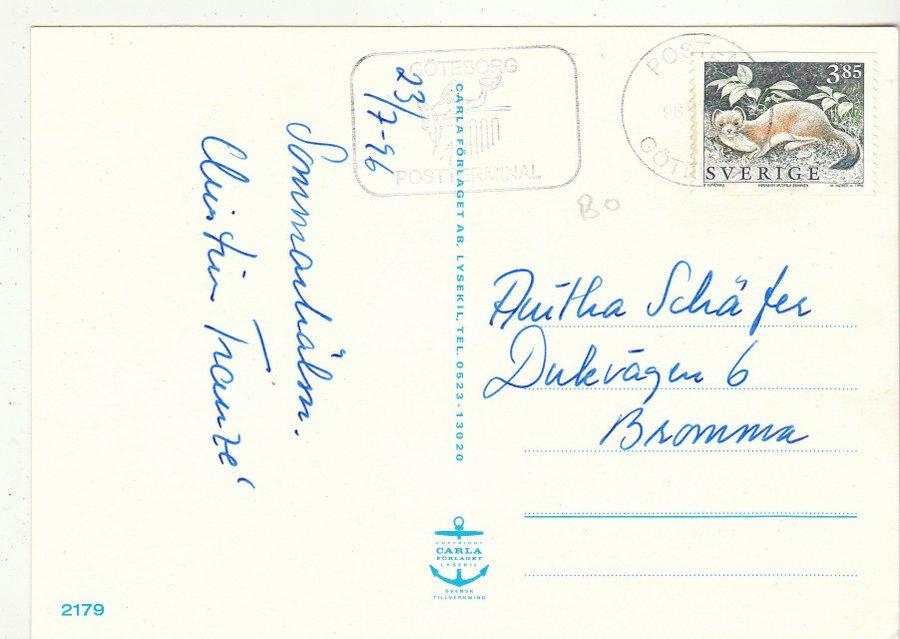 23/7-96
Sommarhälsn.
GÖTEBORG
POSTTERMINAL
POST
96
GÖT
3.85
SVERIGE
CARLA FÖRLAGET AB, LYSEKIL, TEL. 0523-13020
BO
Schäfer
Dukvägen 6
Bromma
COPYRIGHT
CARLA
FÖRLAGET
LYSEKIL
SVENSK
TILLVERKNING
2179